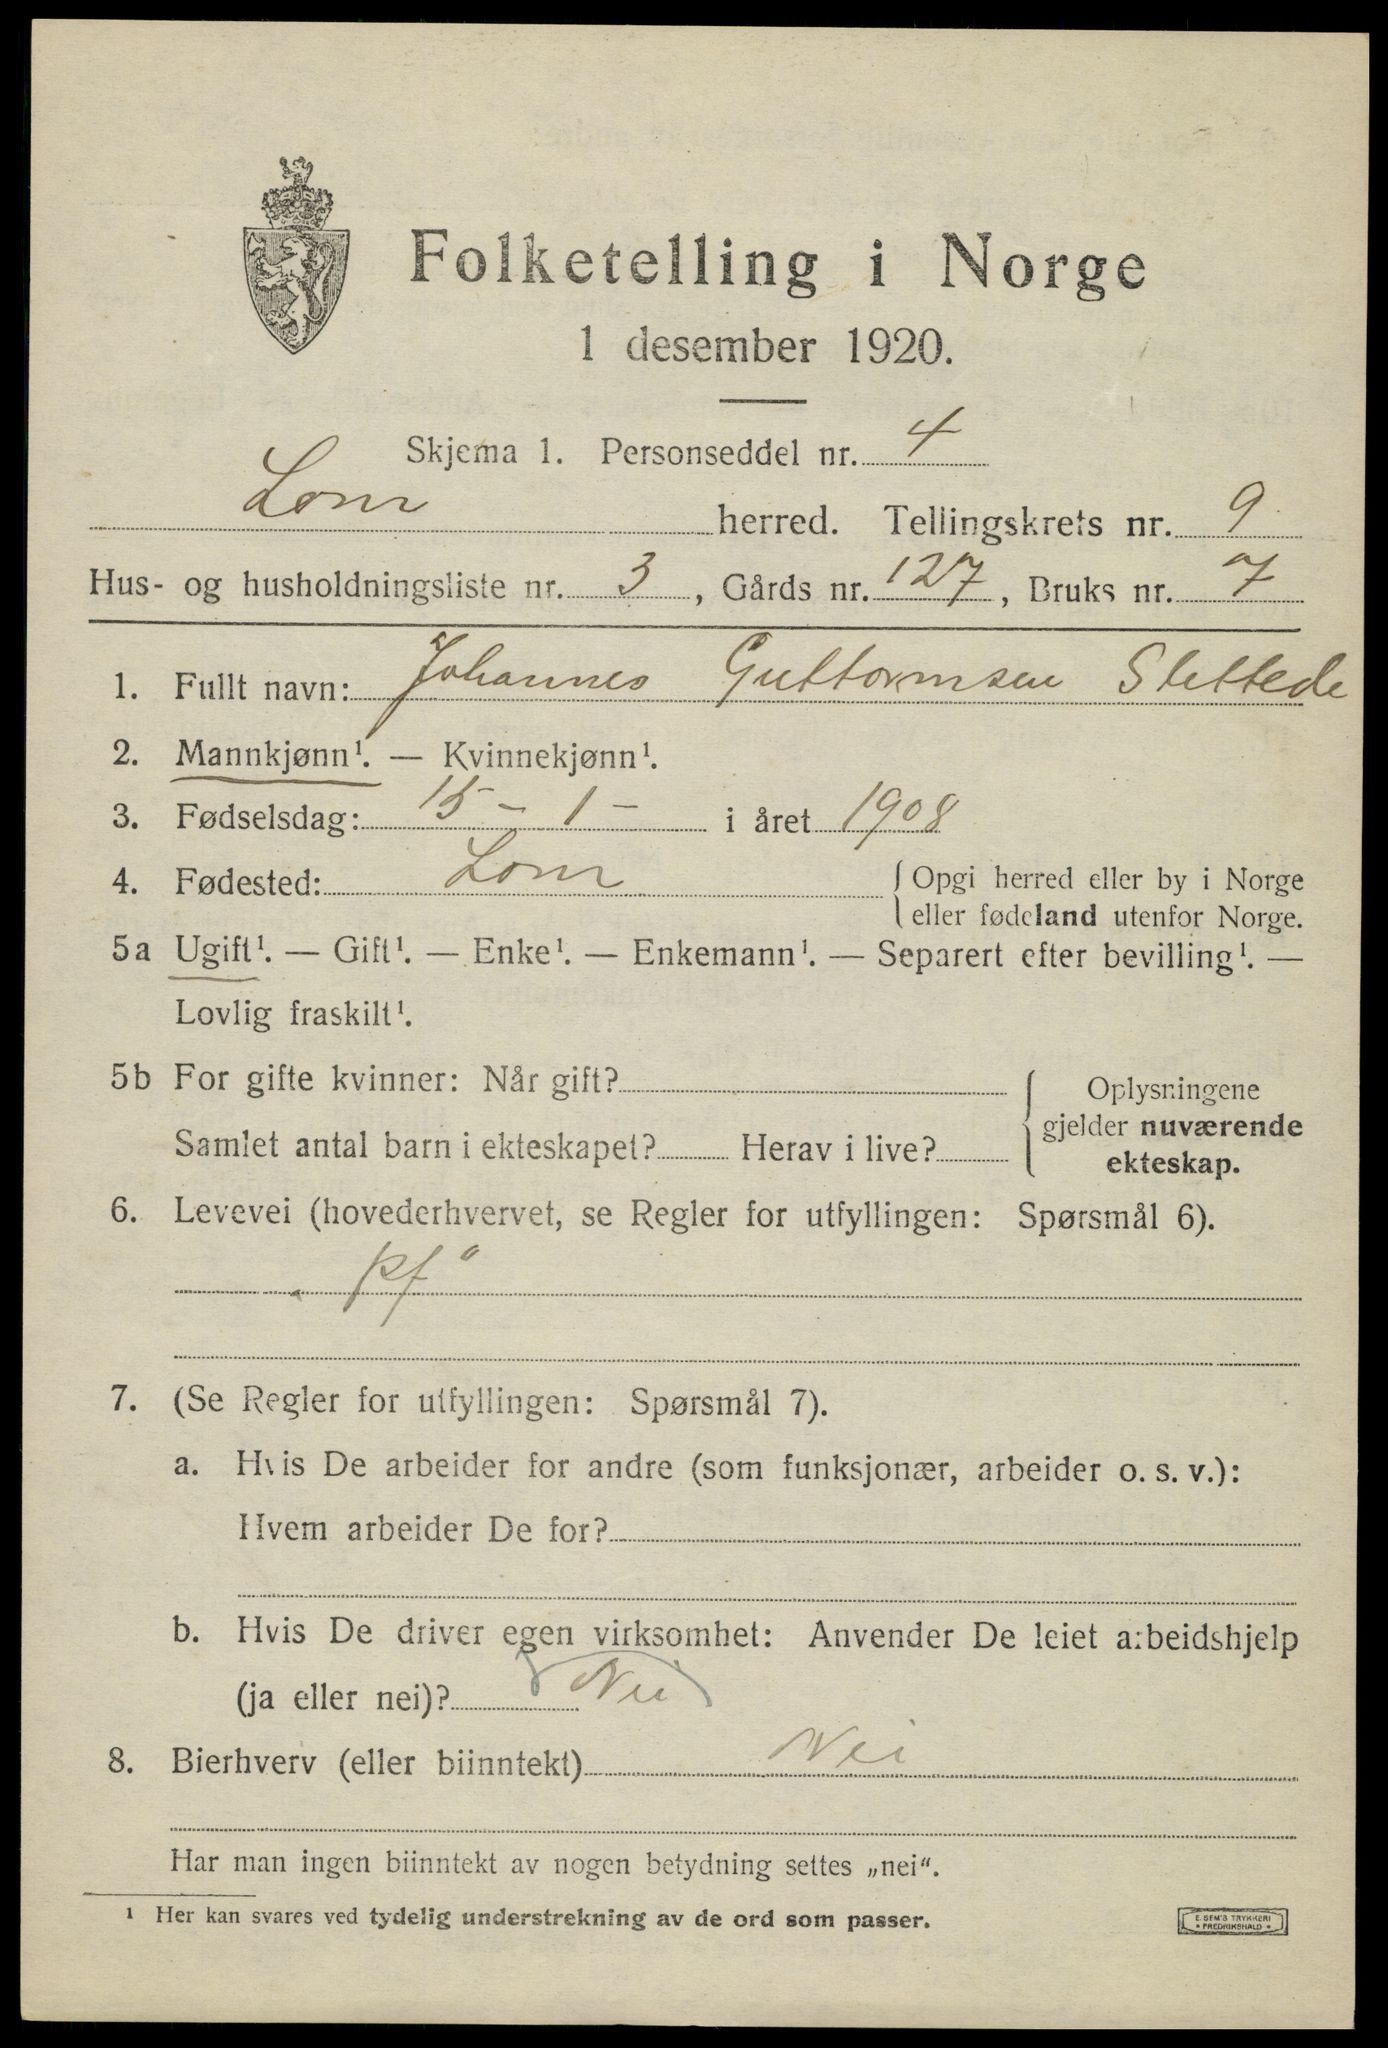 Folketelling i Norge
1 desember 1920.
Skjema 1. Personseddel nr. 4
Lom herred. Tellingskrets nr. 9
Hus- og husholdningsliste nr. 3, Gårds nr. 127, Bruks nr. 7
1. Fullt navn: Johannes Guttormsen Slettede
2. Mannkjønn¹. — Kvinnekjønn¹.
3. Fødselsdag: 15 - 1 - i året 1908
4. Fødested: Lom { Opgi herred eller by i Norge
eller fødeland utenfor Norge.
5a Ugift¹. — Gift¹. — Enke¹. — Enkemann¹. — Separert efter bevilling¹. —
Lovlig fraskilt¹.
5b For gifte kvinner: Når gift? { Oplysningene
gjelder nuværende
Samlet antal barn i ekteskapet? Herav i live?
ekteskap.
6. Levevei (hovederhvervet, se Regler for utfyllingen: Spørsmål 6).
pf
7. (Se Regler for utfyllingen: Spørsmål 7).
a. Hvis De arbeider for andre (som funksjonær, arbeider o. s. v.):
Hvem arbeider De for?
b. Hvis De driver egen virksomhet: Anvender De leiet arbeidshjelp
(ja eller nei)? Nei
8. Bierhverv (eller biinntekt) Nei
Har man ingen biinntekt av nogen betydning settes „nei“.
¹ Her kan svares ved tydelig understrekning av de ord som passer.
E. SEM'S TRYKKERI
* FREDRIKSHALD *